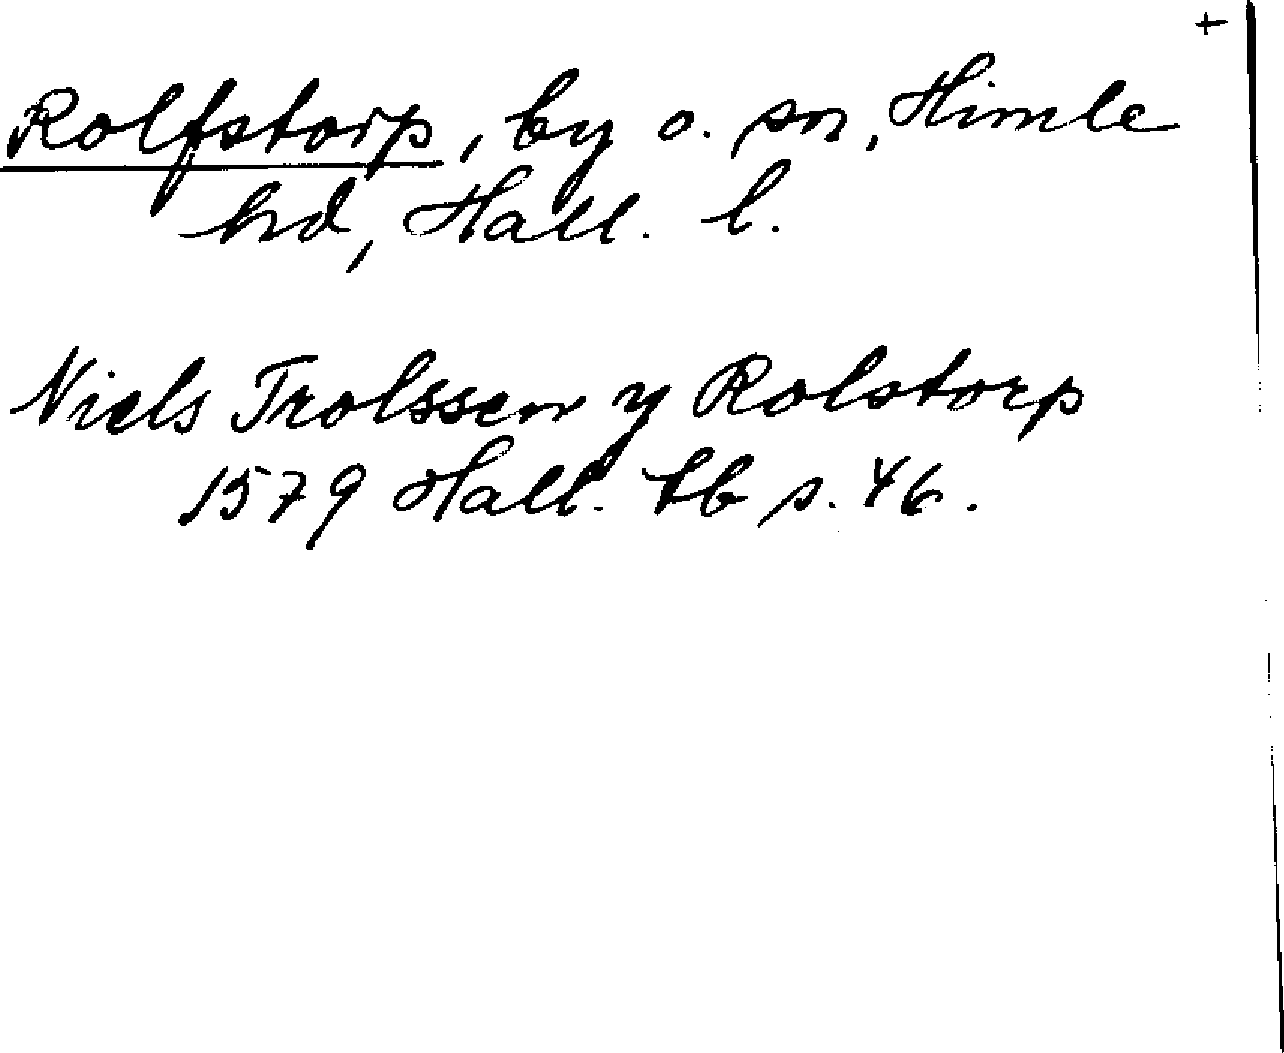 +
Rolfstorp, by o. sn, Himle
hd, Hall. l.
Niels Trolssen y Rolstorp
1579 Hall. tb s. 46.